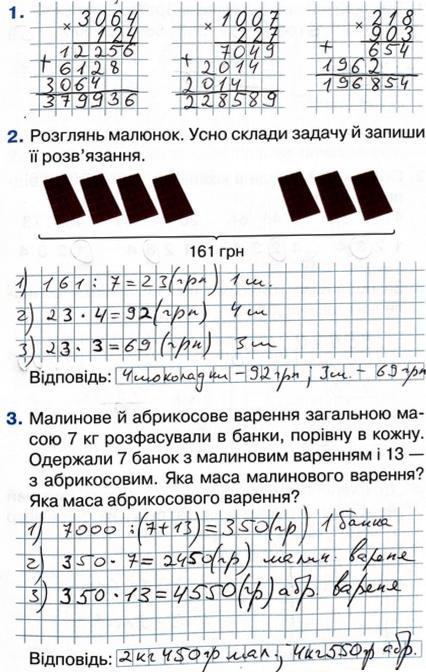 1.
× 3064
124
12256
+ 6128
3064
379936
× 1007
227
7049
+ 2014
2014
228589
× 218
903
+ 654
1962
196854
2. Розглянь малюнок. Усно склади задачу й запиши
її розв'язання.
161 грн
1) 161 : 7 = 23 (грн) 1 ш.
2) 23 · 4 = 92 (грн) 4 ш
3) 23 · 3 = 69 (грн) 3 ш
Відповідь: 4 шоколадки – 92 грн; 3ш. – 69 грн
3. Малинове й абрикосове варення загальною ма-
сою 7 кг розфасували в банки, порівну в кожну.
Одержали 7 банок з малиновим варенням і 13 —
з абрикосовим. Яка маса малинового варення?
Яка маса абрикосового варення?
1) 7000 : (7+13) = 350 (гр) 1 банка
2) 350 · 7 = 2450 (гр) малин. варене
3) 350 · 13 = 4550 (гр) абр. варене
Відповідь: 2 кг 450 гр мал.; 4 кг 550 гр абр.